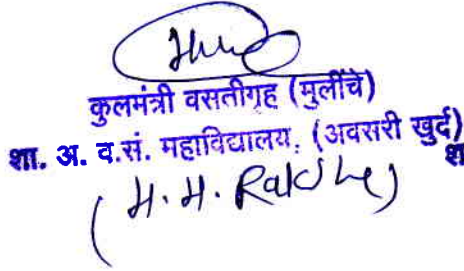 कुलमंत्री वसतीगृह (मुलींचे)
शा. अ. व.सं. महाविद्यालय, (अवसरी खुर्द)
शा
(H. H. Rakshe)